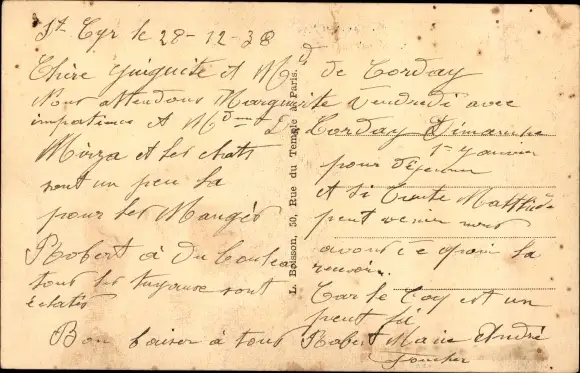 St Cyr le 28-12-38
Chère Guiguite et Md de Corday
Nous attendons Marguerite Vendredi avec
impatience et Mdme de Corday Dimanche
1er Janvier
Mirza et les chats
sont un peu la
pour les Manger
Robert à du Couteau
tous les tuyaux sont
éclatés
pour déjeuner
et si Tante Mathilde
peut venir nous
avons la
revoir.
Car le Coq est un
peut
Bon baiser à tous Robert Marie André
L. Boisson, 50, Rue du Temple à Paris.